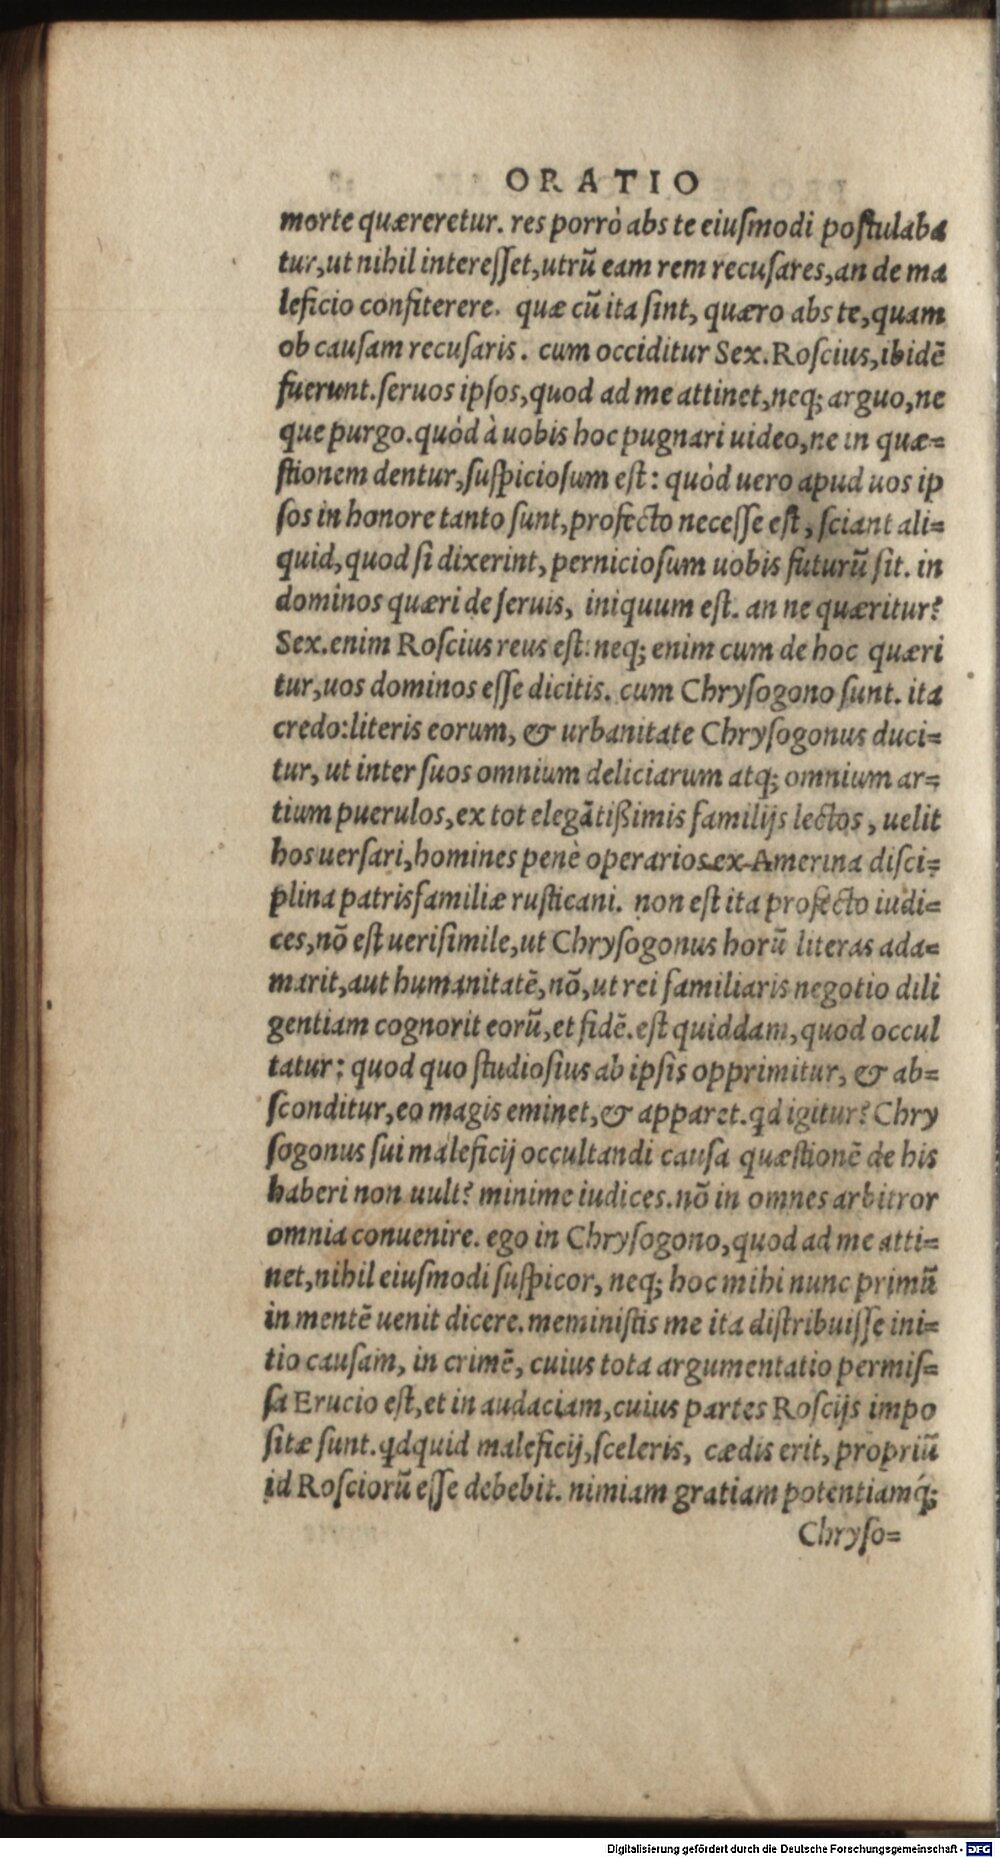 ORATIO
morte quæreretur. res porrò abs te eiuſmodi poſtulaba
tur,ut nihil intereſſet,utrũ eam rem recuſares,an de ma
leficio confiterere. quæ cũ ita ſint, quæro abs te,quam
ob cauſam recuſaris. cum occiditur Sex. Roſcius,ibidē
fuerunt.ſeruos ipſos,quod ad me attinet,neq; arguo,ne
que purgo.quòd à uobis hoc pugnari uideo,ne in quæ=
ſtionem dentur,ſuſpicioſum eſt: quòd uero apud uos ip
ſos in honore tanto ſunt,profecto neceſſe eſt, ſciant ali=
quid,quod ſi dixerint, pernicioſum uobis futurũ ſit. in
dominos quæri de ſeruis, iniquum eſt. an ne quæritur?
Sex.enim Roſcius reus eſt: neq; enim cum de hoc quæri
tur,uos dominos eſſe dicitis. cum Chryſogono ſunt. ita
credo:literis eorum, & urbanitate Chryſogonus duci=
tur, ut inter ſuos omnium deliciarum atq; omnium ar=
tium puerulos,ex tot elegãtißimis familijs lectos, uelit
hos uerſari,homines penè operarios ex Amerina diſci=
plina patrisfamiliæ ruſticani. non eſt ita profecto iudi=
ces,nõ eſt ueriſimile,ut Chryſogonus horũ literas ada=
marit,aut humanitatē,nõ,ut rei familiaris negotio dili
gentiam cognorit eorũ,et fidē.eſt quiddam,quod occul
tatur: quod quo ſtudioſius ab ipſis opprimitur, & ab=
ſconditur,eo magis eminet,& apparet.qd igitur? Chry
ſogonus ſui maleficij occultandi cauſa quæſtionē de his
haberi non uult? minime iudices.nõ in omnes arbitror
omnia conuenire. ego in Chryſogono,quod ad me atti=
net,nihil eiuſmodi ſuſpicor, neq; hoc mihi nunc primũ
in mentē uenit dicere. meminiſtis me ita diſtribuiſſe ini=
tio cauſam, in crimē, cuius tota argumentatio permiſ=
ſa Erucio eſt,et in audaciam,cuius partes Roſcijs impo
ſitæ ſunt.qdquid maleficij,ſceleris, cædis erit, propriũ
id Roſciorũ eſſe debebit. nimiam gratiam potentiamq́;
Chryſo=
Digitalisierung gefördert durch die Deutsche Forschungsgemeinschaft - DFG